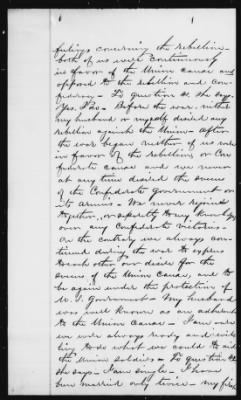 feelings concerning the rebellion
both of us were continuously
in favor of the Union cause and
opposed to the rebellion and Con-
federacy - To question 2 she says.
Yes, I was - Before the war neither
my husband or myself desired any
rebellion against the Union - after
the war began neither of us were
in favor of the rebellion or Con-
federate cause and we never
at any time desired the success
of the Confederate government or
its armies - We never rejoiced
together, or separately to my knowledge
over any Confederate victories -
On the contrary we always con-
tinued during the war to express
to each other our desire for the
success of the Union Cause, and to
be again under the protection of
U. S. Government - My husband
was well known as an adherent
to the Union Cause - I am sure
we were always ready and will-
ing to do what we could to aid
the Union soldiers - To question
she says - I am single - I have
been married only twice - my first